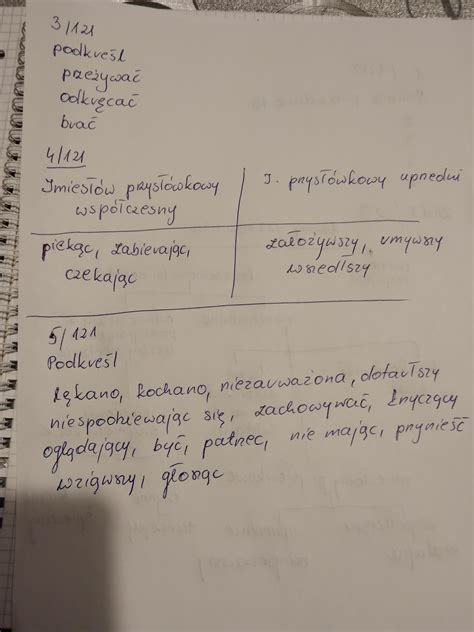 3/121
podkreśl
przeżywać
odkręcać
brać
4/121
Imiesłów przysłówkowy współczesny
I. przysłówkowy uprzedni
piekąc, zabierając,
czekając
założywszy, umywszy
wsiedłszy
5/121
Podkreśl
kochano, niezauważona, dotarłszy
niespodziewając się, zachowywać, krzyczący
oglądający, być, patrzec, nie mając, przynieść
wziąwszy, głosząc